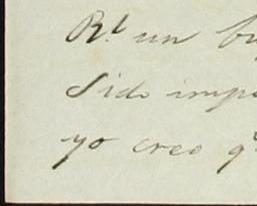 Rl un bu
Sido impo
yo creo q